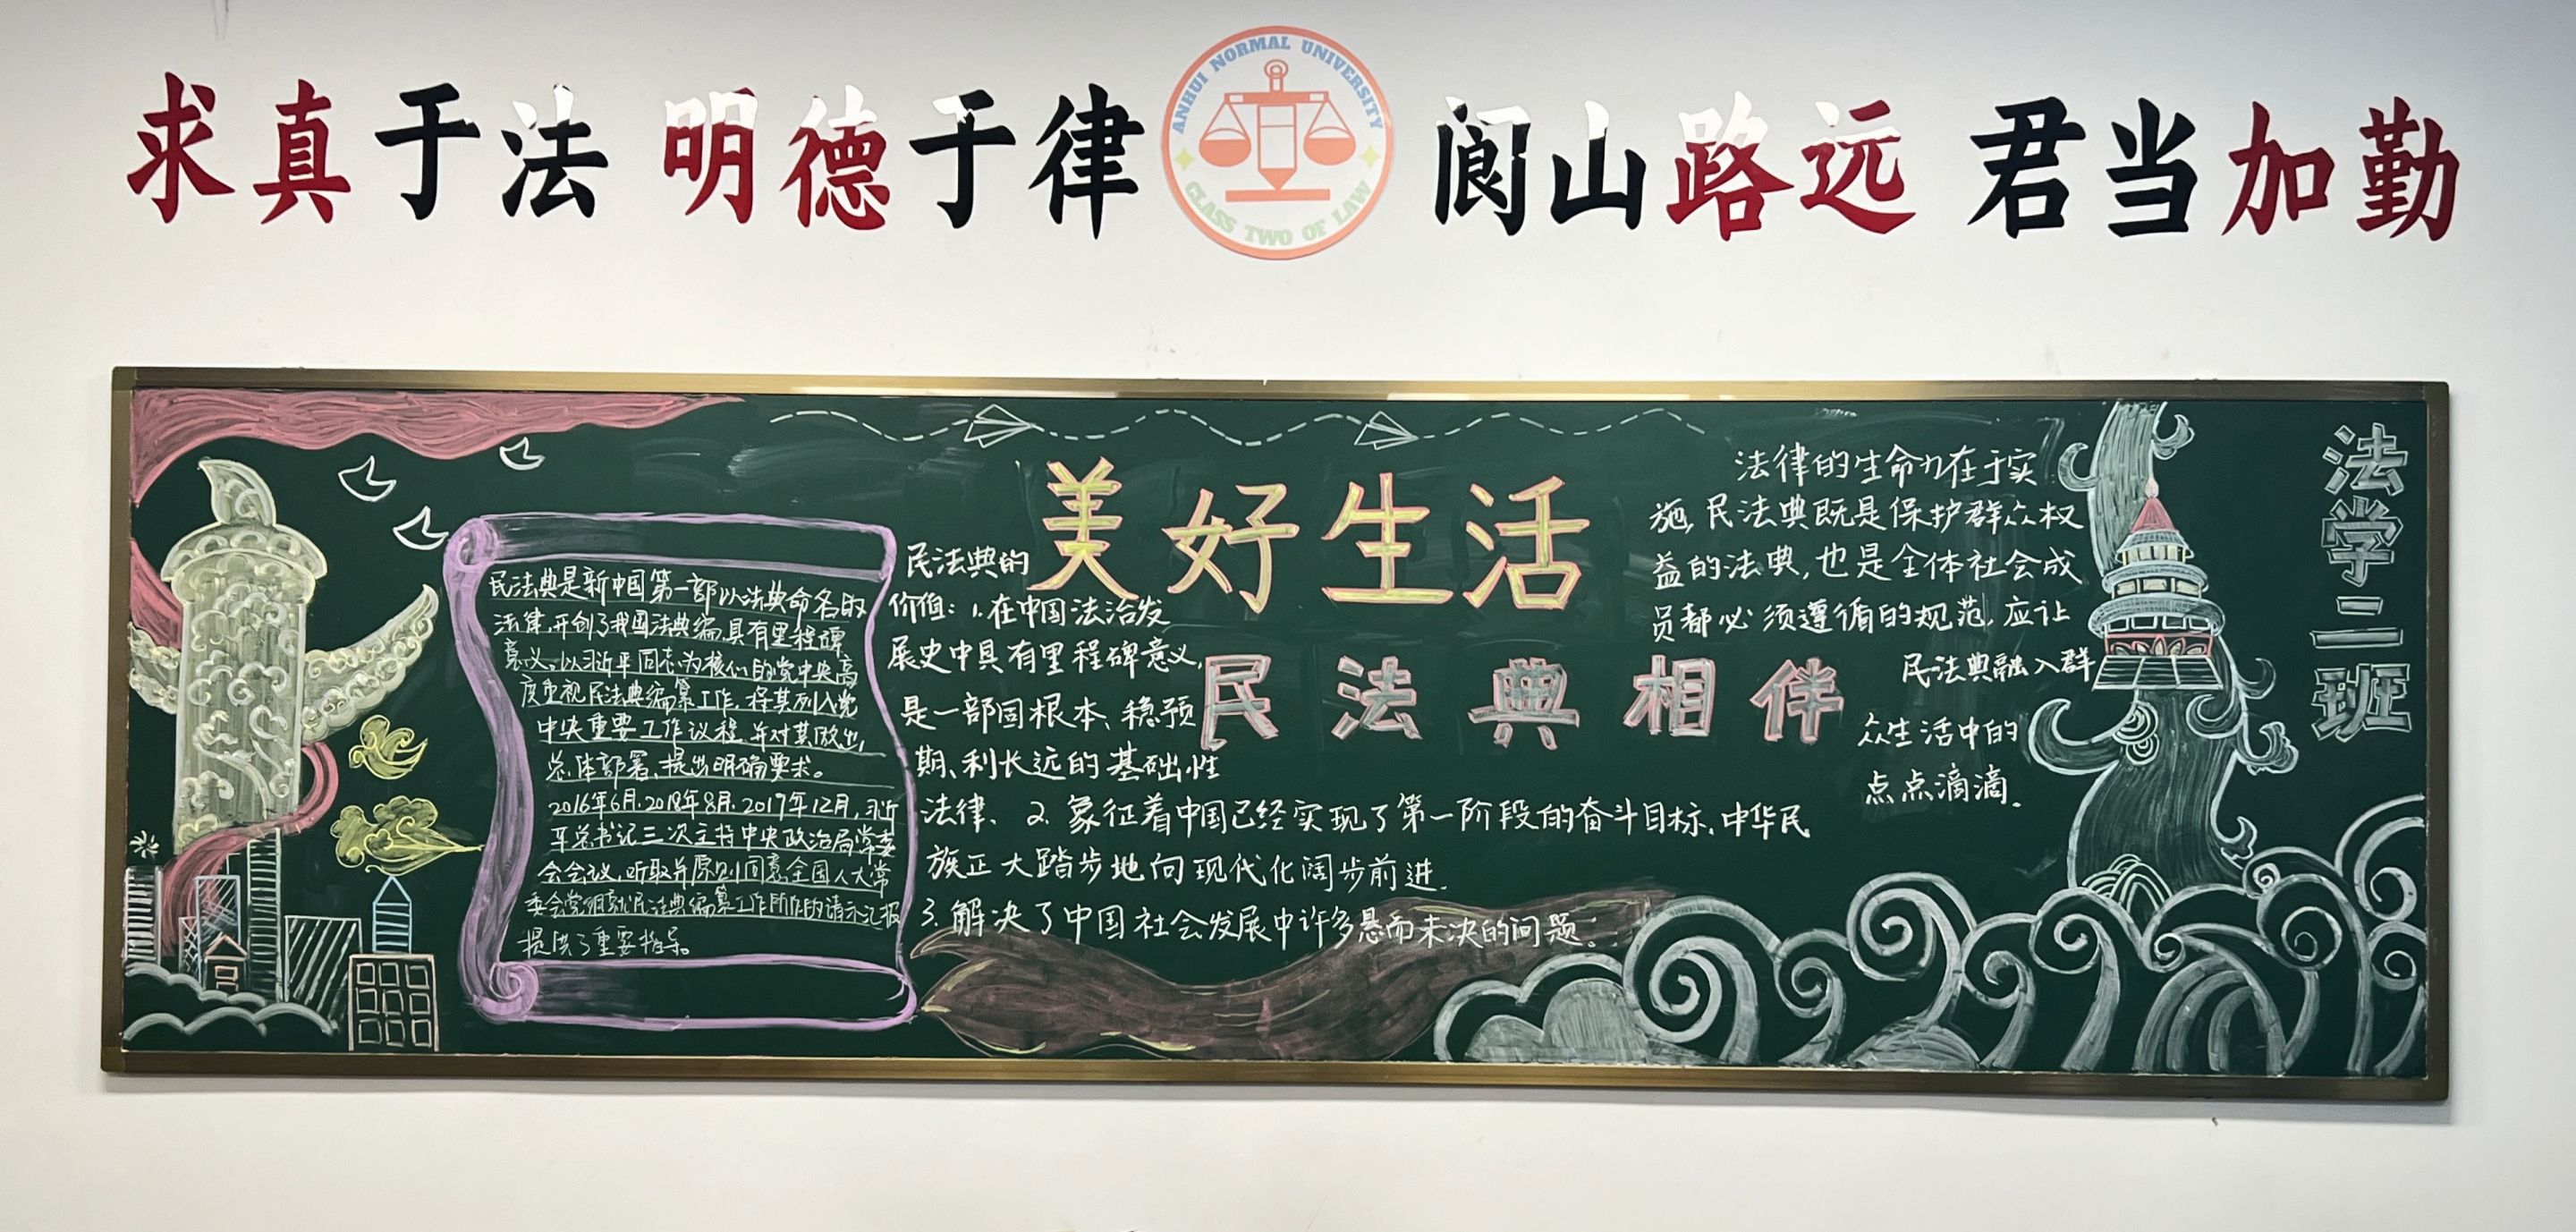 求真于法 明德于律
ANHUI NORMAL UNIVERSITY
CLASS TWO OF LAW
阆山路远 君当加勤
民法典是新中国第一部以法典命名的
法律,开创了我国法典编,具有里程碑
意义。以习近平同志为核心的党中央高
度重视民法典编纂工作,将其列入党
中央重要工作议程,并对其做出
总体部署、提出明确要求。
2016年6月、2018年8月、2017年12月,习近
平总书记三次主持中央政治局常委
会会议,听取并原则同意全国人大常
委会党组就民法典编纂工作所作的请示汇报
提供了重要指导。
美好生活
民法典相伴
民法典的
价值:1.在中国法治发
展史中具有里程碑意义,
是一部固根本、稳预
期、利长远的基础性
法律、2.象征着中国已经实现了第一阶段的奋斗目标,中华民
族正大踏步地向现代化阔步前进.
3.解决了中国社会发展中许多悬而未决的问题。
法律的生命力在于实
施,民法典既是保护群众权
益的法典,也是全体社会成
员都必须遵循的规范,应让
民法典融入群
众生活中的
点点滴滴.
法学二班